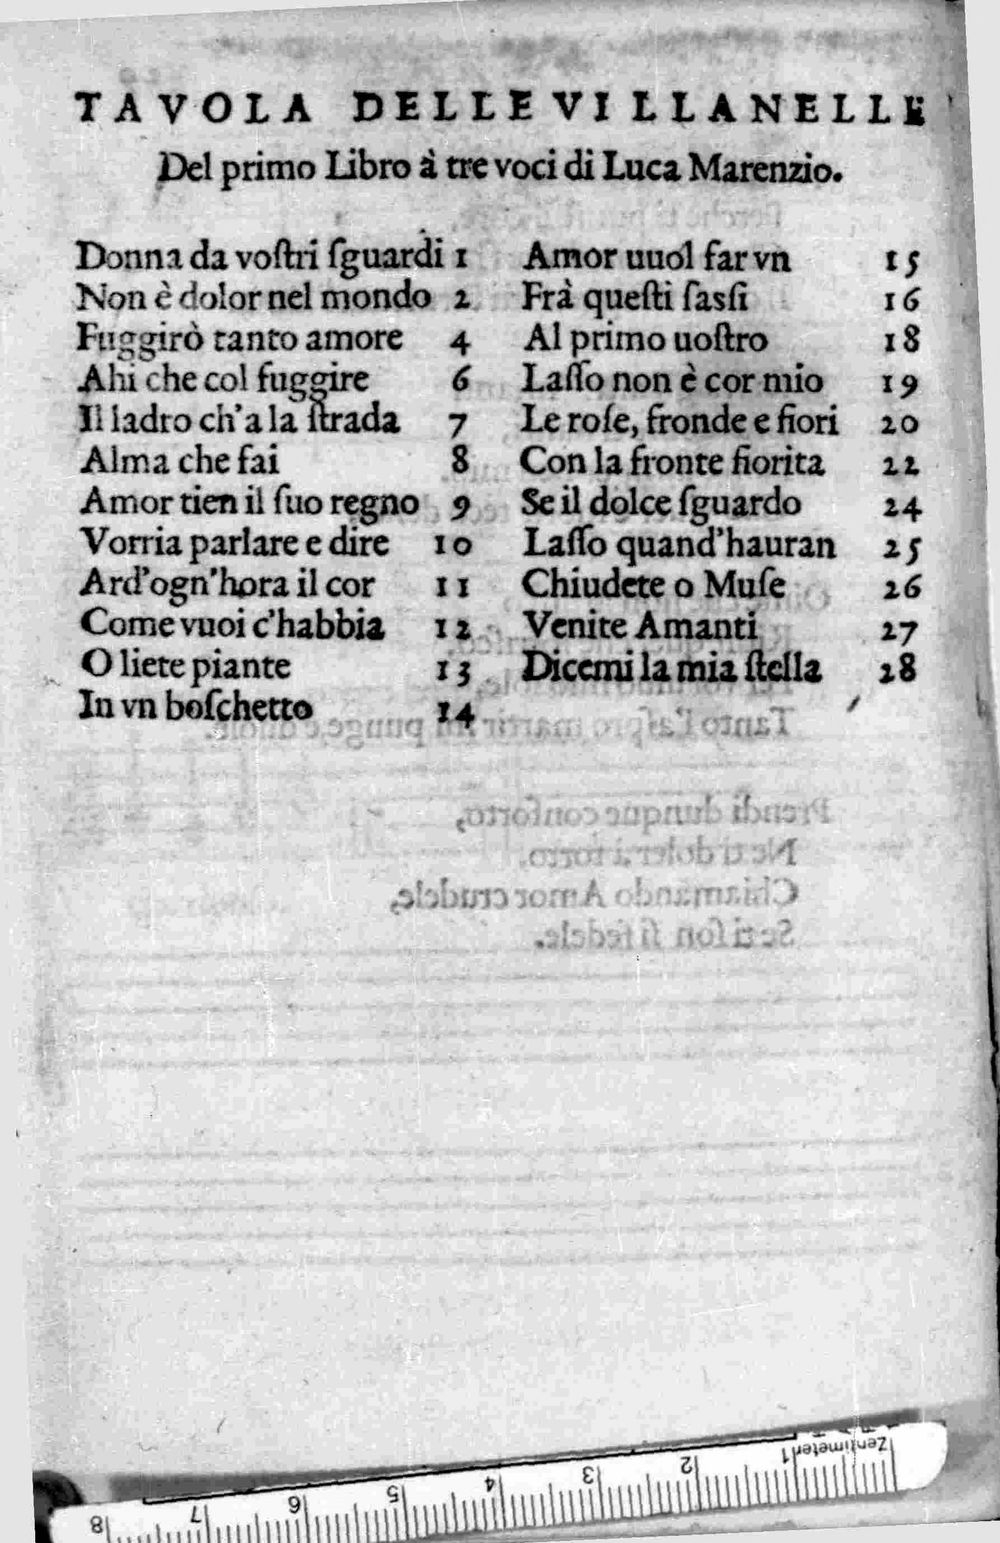 TAVOLA DELLE VILLANELLE
Del primo Libro à tre voci di Luca Marenzio.
Donna da voſtri ſguardi 1
Non è dolor nel mondo 2
Fuggirò tanto amore 4
Ahi che col fuggire 6
Il ladro ch'a la ſtrada 7
Alma che fai 8
Amor tien il ſuo regno 9
Vorria parlare e dire 10
Ard'ogn'hora il cor 11
Come vuoi c'habbia 12
O liete piante 13
In vn boſchetto 14
Amor uuol far vn 15
Frà queſti ſaſſi 16
Al primo uoſtro 18
Laſſo non è cor mio 19
Le roſe, fronde e fiori 20
Con la fronte fiorita 22
Se il dolce ſguardo 24
Laſſo quand'hauran 25
Chiudete o Muſe 26
Venite Amanti 27
Dicemi la mia ſtella 28
Prendi dunque conforto,
Ne ti doler i torto.
Chiamando Amor crudele,
Se ti ſon ſi fedele.
Zentimeter 1 2 3 4 5 6 7 8